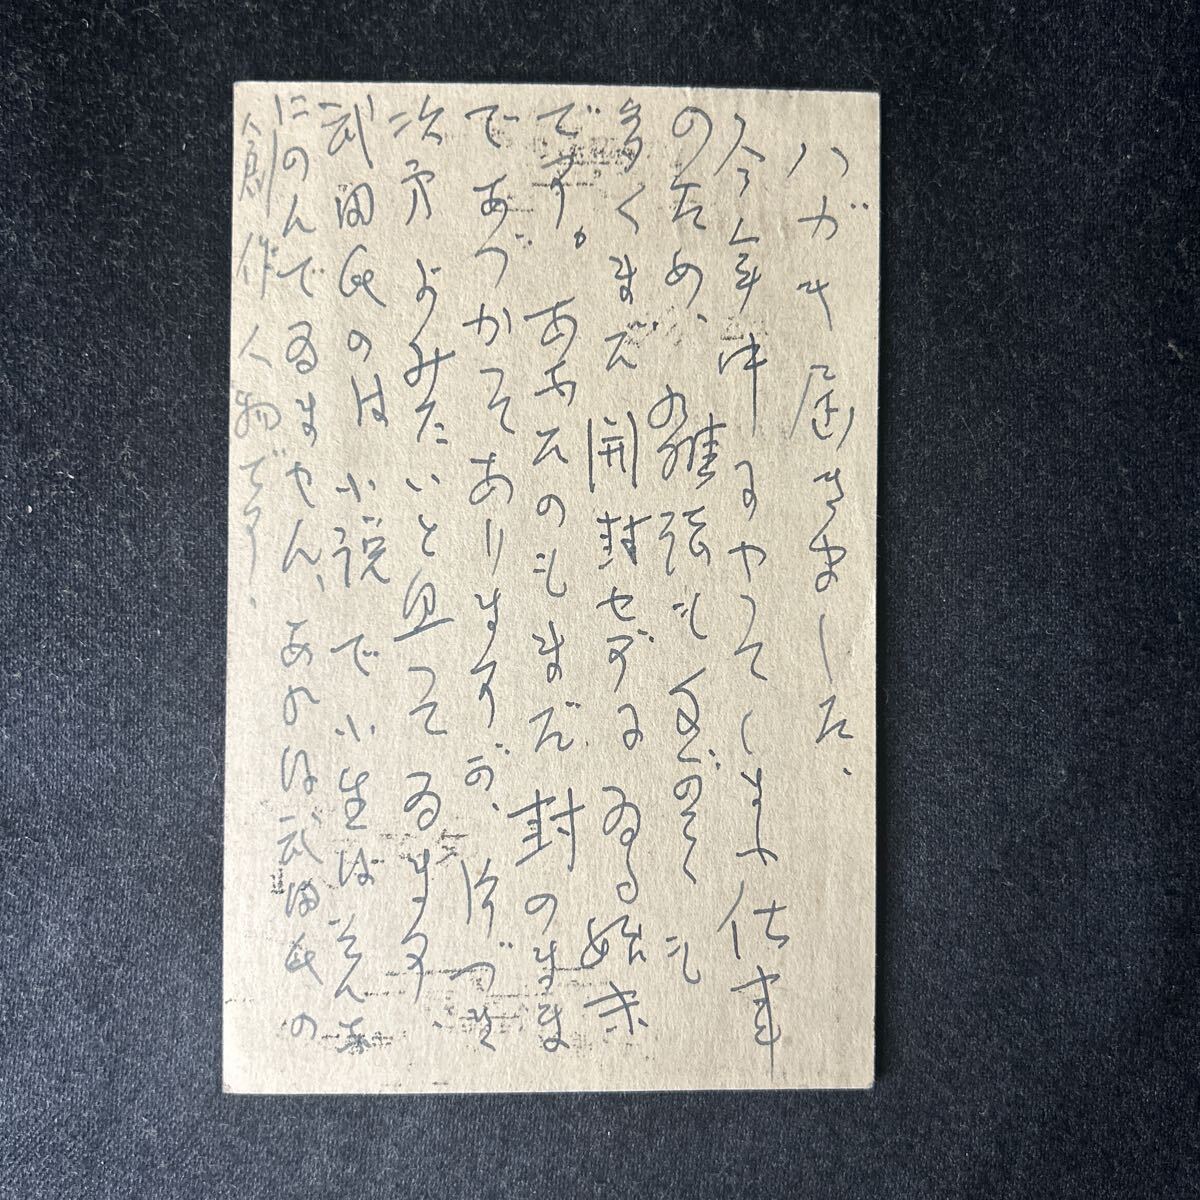 ハガキ届きました、
今年中にやってしまふ仕事
のため、雑誌も
多くまだ開封せずにゐる始末
です。あなたのもまだ封のまま
であづかつてありますが、片づき
次第よみたいと思つてゐます、
武田氏のは小説で小生はそんな
にのんでゐません、あれは武田氏の
創作人物です.